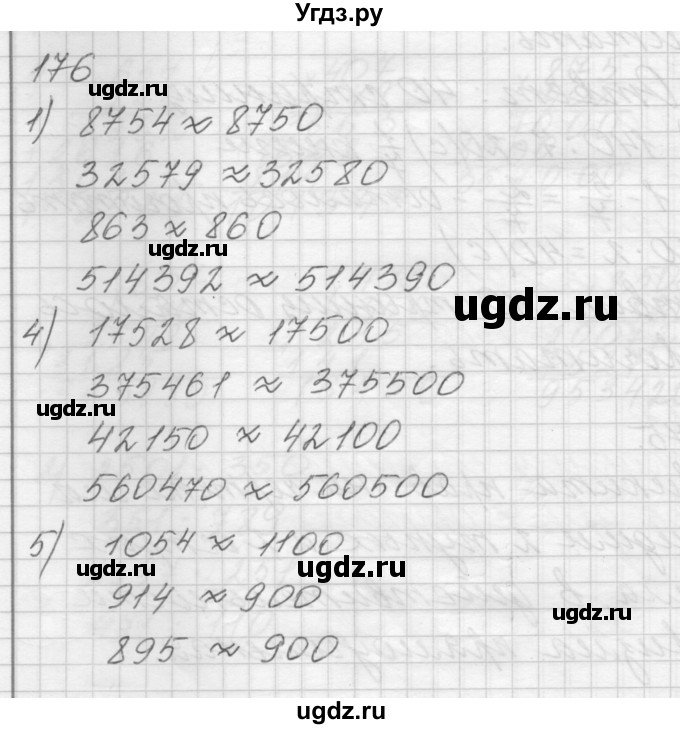 Угдз.ру
176
ugdz.ru
1) 8754 ≈ 8750
32579 ≈ 32580
863 ≈ 860
ugdz.ru
514392 ≈ 514390
ugdz.ru
4) 17528 ≈ 17500
375461 ≈ 375500
ugdz.ru
42150 ≈ 42100
560470 ≈ 560500
5) 1054 ≈ 1100
ugdz.ru
ugdz.ru
914 ≈ 900
ugdz.ru
895 ≈ 900
ugdz.ru